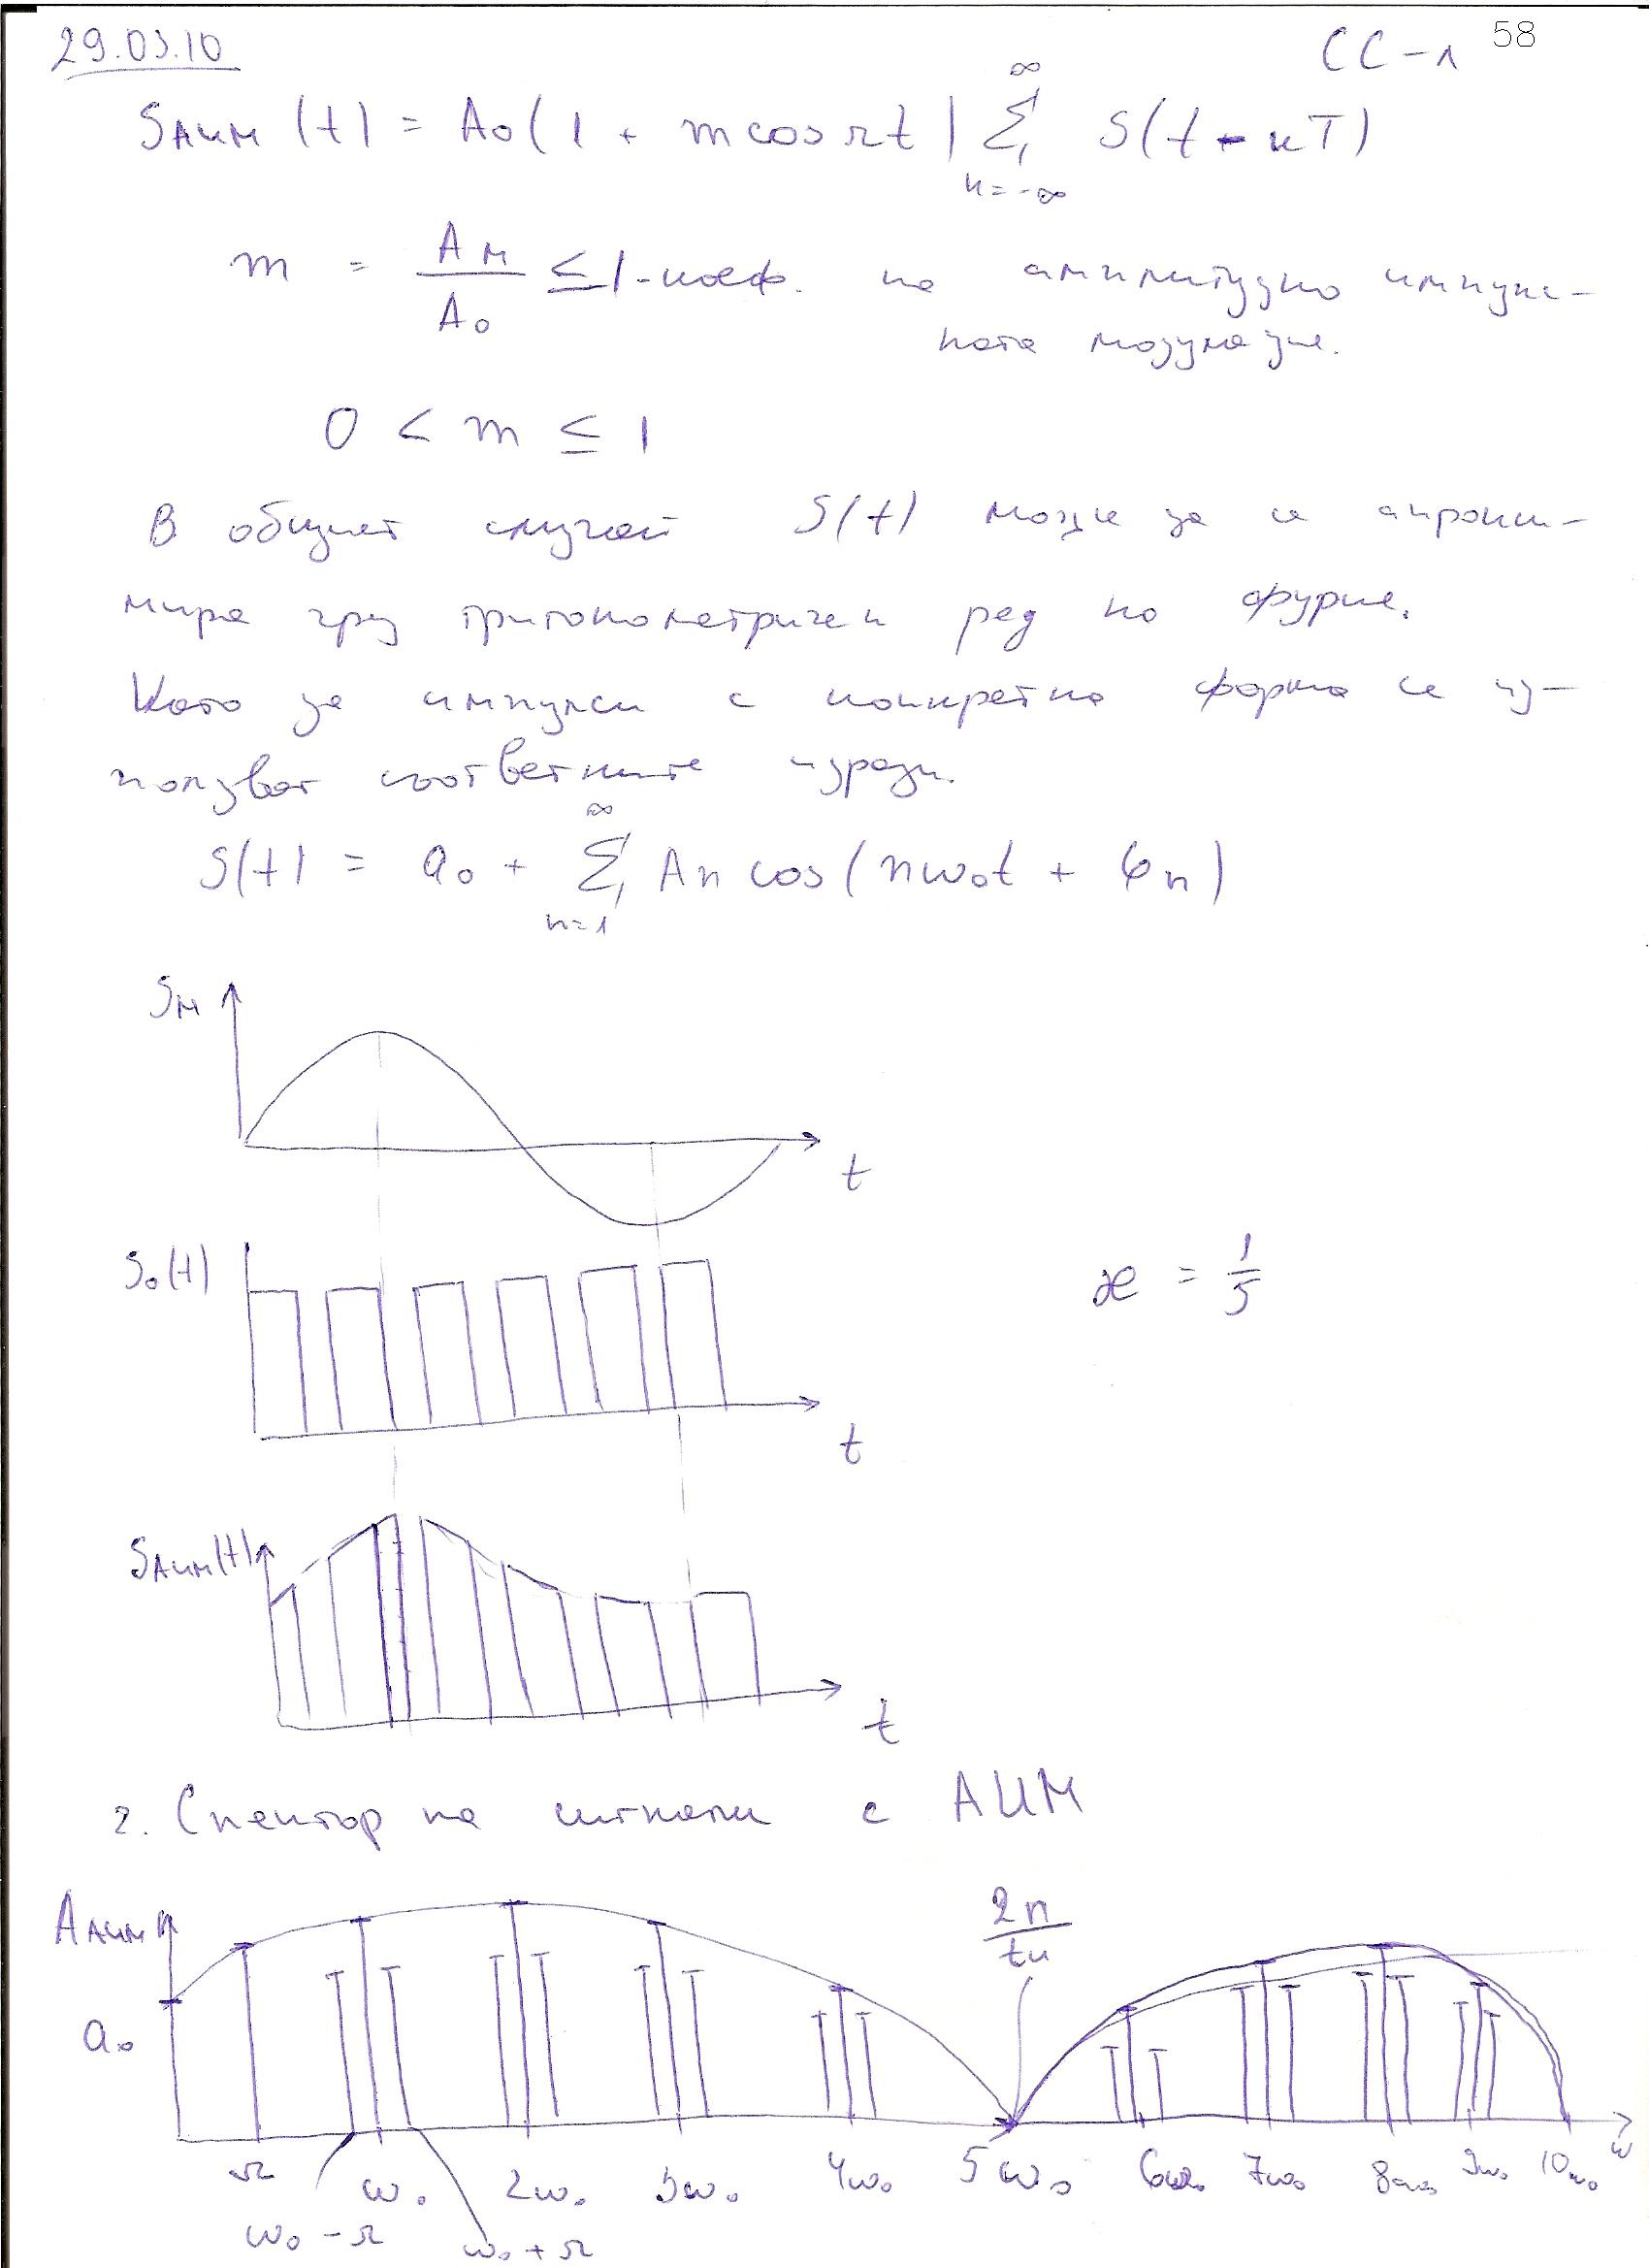 29.03.10
СС-1 58
SАИМ(t) = A₀(1 + m cos Ωt) ∑ S(t - кT)
∞
к=-∞
m = Aм/A₀ ≤ 1 - коеф. на амплитудно импулс-
ната модулация.
0 < m ≤ 1
В общият случай S(t) може да се апрокси-
мира чрез тригонометричен ред на фурие.
Като за импулси с конкретна форма се из-
ползват съответните изрази.
∞
S(t) = a₀ + ∑ An cos(nω₀t + φn)
n=1
Sм
t
S₀(t)
æ = 1/5
t
SАИМ(t)
t
2. Спектор на сигнали с АИМ
AАИМ
2π/tи
a₀
Ω ω₀ 2ω₀ 3ω₀ 4ω₀ 5ω₀ 6ω₀ 7ω₀ 8ω₀ 9ω₀ 10ω₀ ω
ω₀ - Ω ω₀ + Ω